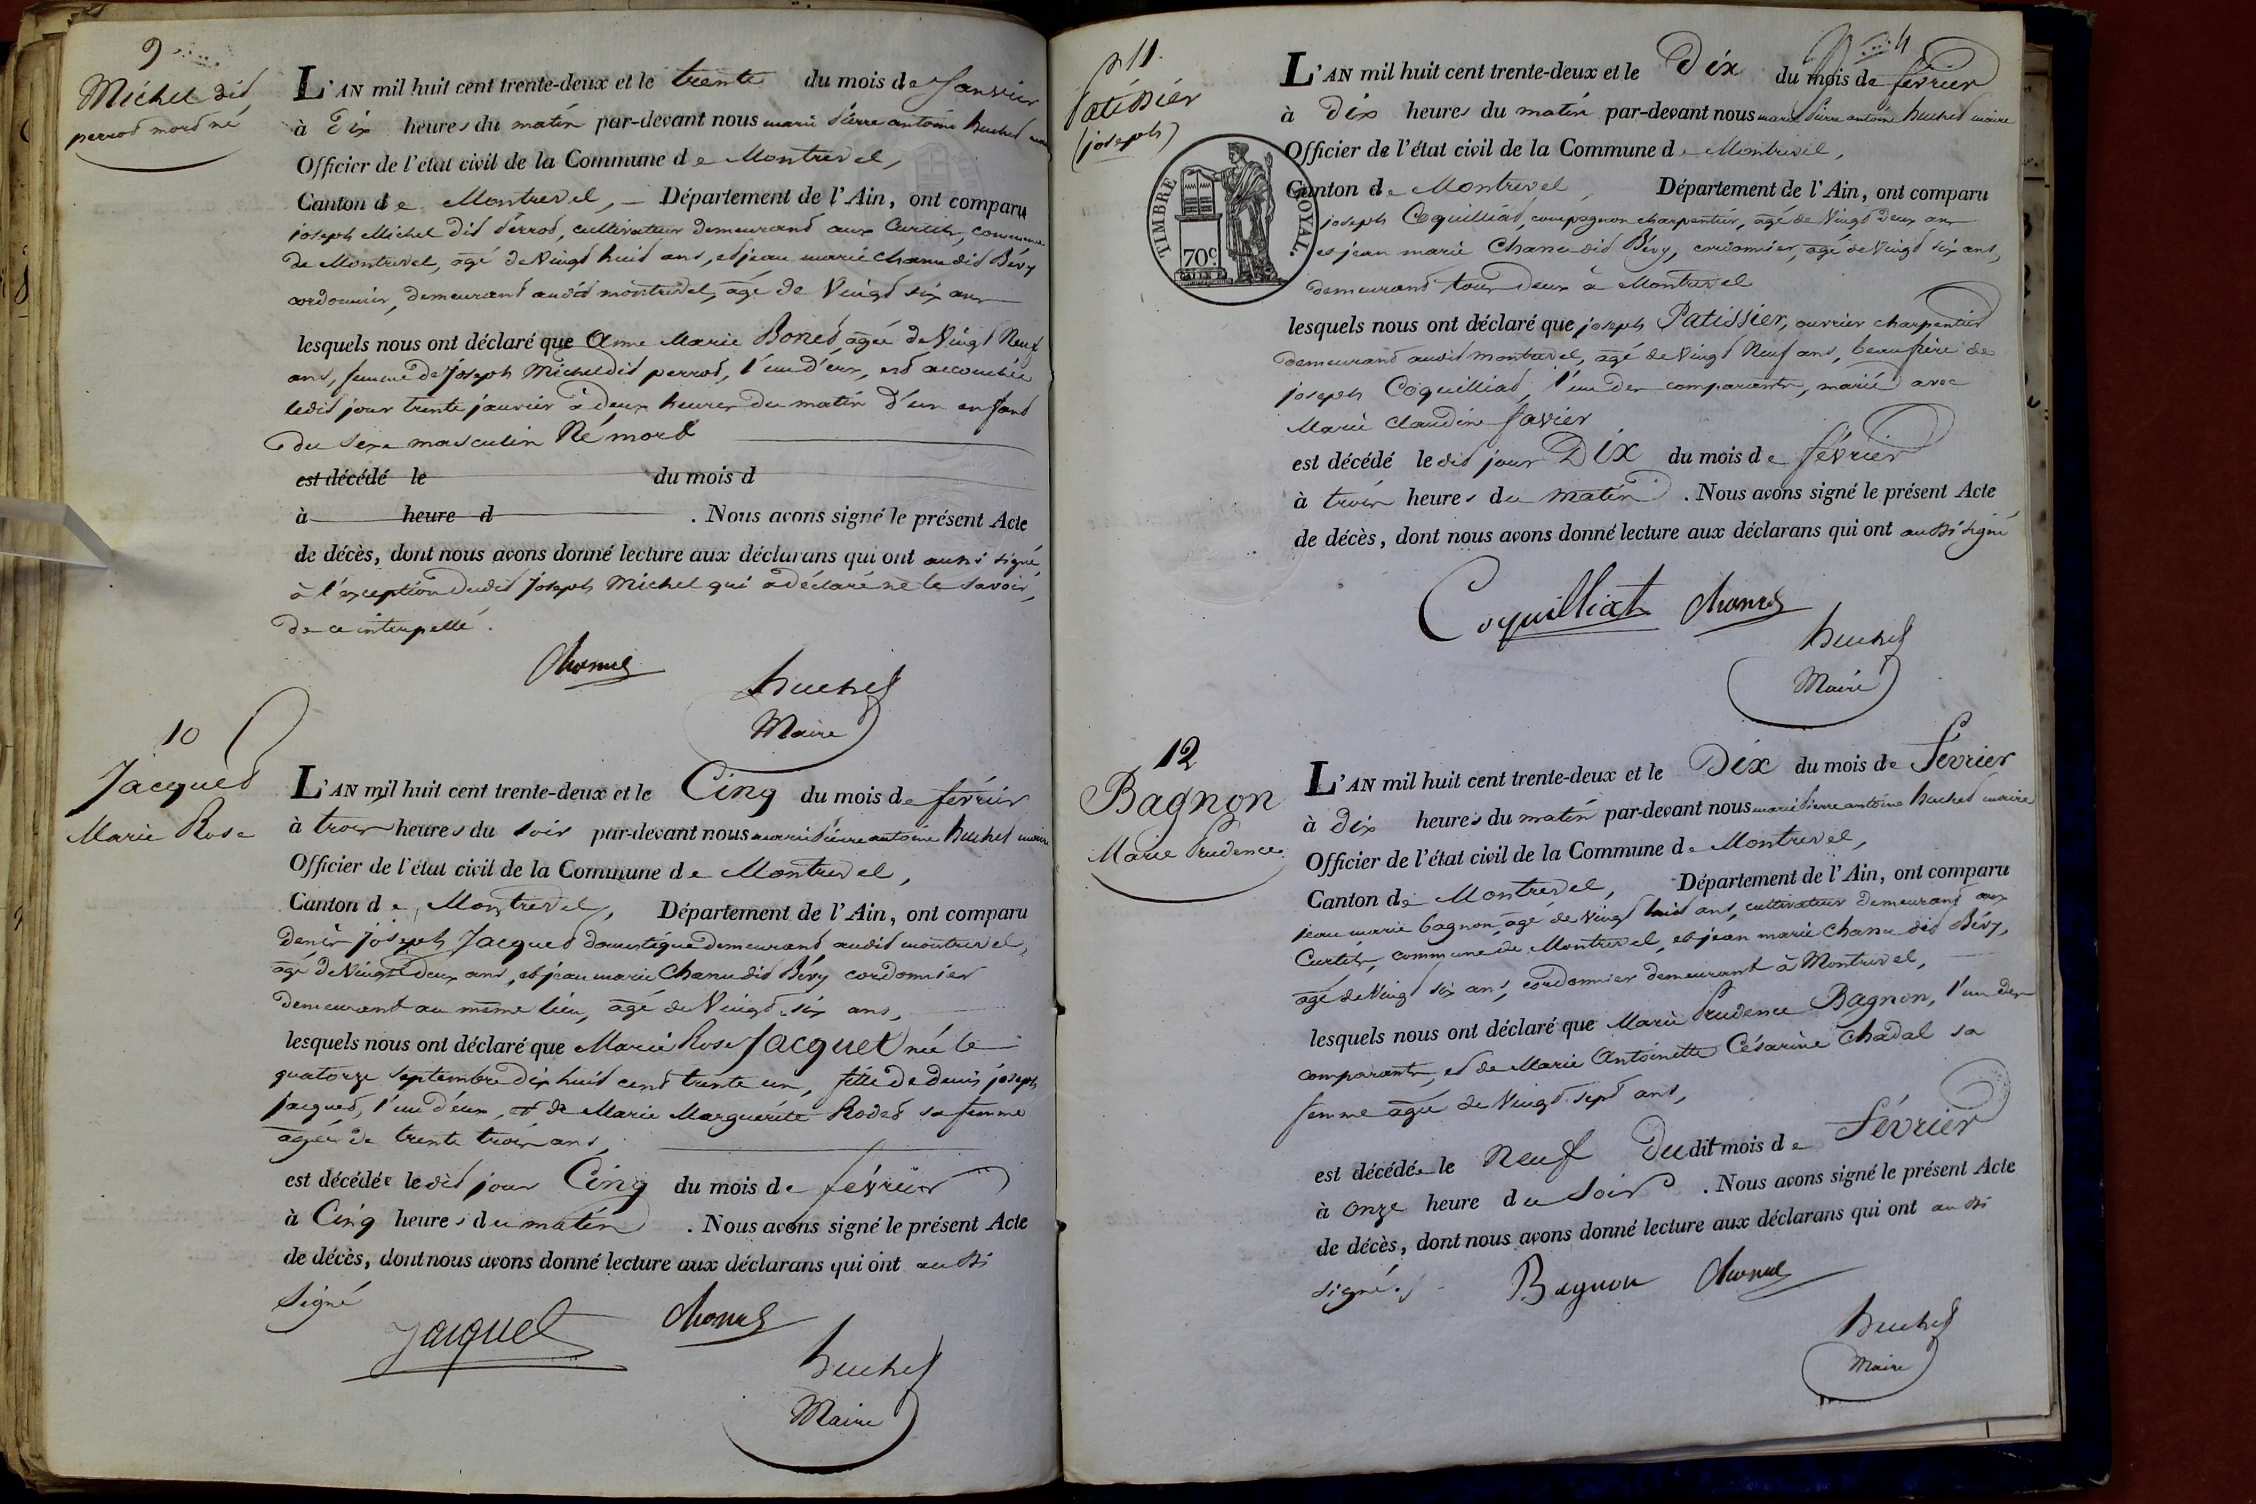 9
Michel dit
perrod mord né
L'AN mil huit cent trente-deux et le trente du mois de Janvier
à Dix heures du matin par-devant nous marie Pierre antoine huchet
Officier de l'état civil de la Commune de Montrevel,
Canton de Montrevel, — Département de l'Ain, ont comparu
joseph Michel dit Perrod, cultivateur demeurand aux Curtits, commune
de Montrevel, agé de Vingt huit ans, et jean marie Chanu dit Bévy
cordonnier, demeurand audit montrevel, agé de Vingt six ans
lesquels nous ont déclaré que Anne Marie Boned agée de Vingt Neuf
ans, femme de Joseph Michel dit perrod, l'un d'eux, est accouchée
ledit jour trente janvier à deux heures du matin d'un enfant
du sexe masculin Né mort
est décédé le du mois d
à heure d . Nous avons signé le présent Acte
de décès, dont nous avons donné lecture aux déclarans qui ont aussi signé,
à l'exception dudit Joseph Michel qui a déclaré ne le savoir,
de ce interpellé.
Chanu
huchet
Maire
10
Jacqued
Marie Rose
L'AN mil huit cent trente-deux et le Cinq du mois de février
à trois heures du soir par-devant nous marie Pierre antoine huchet maire
Officier de l'état civil de la Commune de Montrevel,
Canton de Montrevel, Département de l'Ain, ont comparu
denis Joseph Jacqued domestique demeurand audit montrevel,
agé de Vingt deux ans, et jean marie Chanu dit Bévy cordonnier
demeurant au même lieu, agé de Vingt six ans,
lesquels nous ont déclaré que Marie Rose Jacquet née le
quatorze septembre dix huit cent trente un, fille de denis joseph
jacqued, l'un d'eux, et de Marie Marguérite Roded sa femme
agée de trente trois ans,
est décédée ledit jour Cinq du mois de février
à Cinq heures du matin . Nous avons signé le présent Acte
de décès, dont nous avons donné lecture aux déclarans qui ont aussi
Signé
Jacquet
Chanu
huchet
Maire
4
11.
Patissier
(joseph)
TIMBRE ROYAL.
70c.
L'AN mil huit cent trente-deux et le Dix du mois de février
à Dix heures du matin par-devant nous marie Pierre antoine huchet maire
Officier de l'état civil de la Commune de Montrevel,
Canton de Montrevel Département de l'Ain, ont comparu
joseph Coquilliat, compagnon charpentier, agé de Vingt deux ans
et jean marie Chanu dit Bévy, cordonnier, agé de Vingt six ans,
demeurand tous Deux à Montrevel
lesquels nous ont déclaré que joseph Patissier, ouvrier charpentier
demeurand audit montrevel, agé de Vingt Neuf ans, beaufrère de
joseph Coquilliat, l'un des comparants, marié avec
Marie Claudine favier
est décédé ledit jour Dix du mois de février
à trois heures du matin . Nous avons signé le présent Acte
de décès, dont nous avons donné lecture aux déclarans qui ont aussi signé
Coquilliat Chanu
huchet
Maire
12
Bagnon
Marie Prudence
L'AN mil huit cent trente-deux et le Dix du mois de février
à Dix heures du matin par-devant nous marie Pierre antoine huchet maire
Officier de l'état civil de la Commune de Montrevel,
Canton de Montrevel, Département de l'Ain, ont comparu
jean marie bagnon agé de Vingt huit ans, cultivateur demeurant aux
Curtits, commune de Montrevel, et jean marie Chanu dit Bévy,
agé de Vingt six ans, cordonnier demeurant à Montrevel,
lesquels nous ont déclaré que Marie Prudence Bagnon, l'un des
comparants, et de Marie Antoinette Césarine Chadal sa
femme agée de Vingt Sept ans,
est décédée le neuf Dudit mois de février
à onze heure du Soir . Nous avons signé le présent Acte
de décès, dont nous avons donné lecture aux déclarans qui ont aussi
signé.
Bagnon Chanu
huchet
Maire